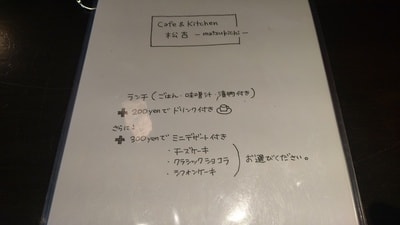 Cafe & Kitchen
松吉 -matsukichi-
ランチ(ごはん 味噌汁 漬物付き)
+ 200yenで ドリンク付き
さらに!
+ 300yenで ミニデザート付き
・チーズケーキ
・クラシックショコラ
・シフォンケーキ
お選びください。